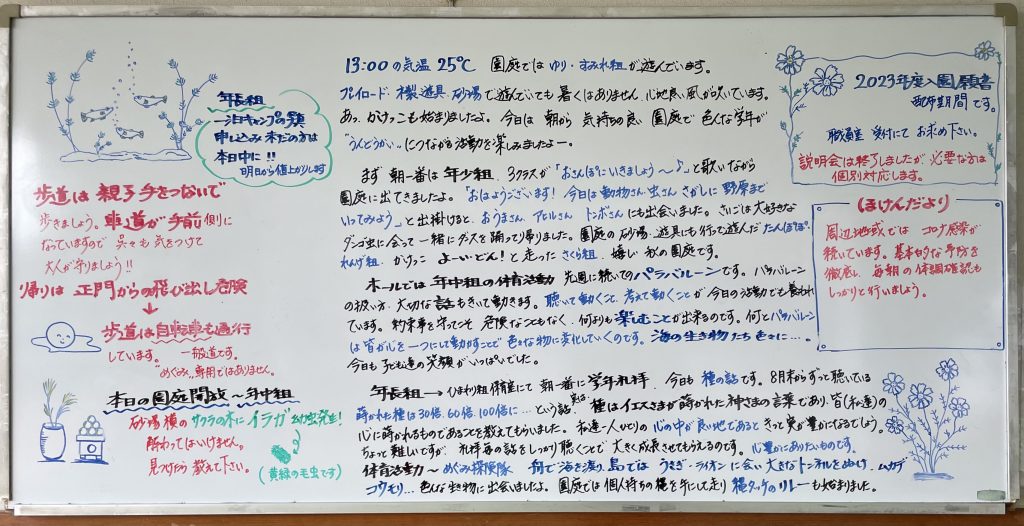 年長組
一泊キャンプの類
申し込み まだの方は
本日中に!!
明日から値上がりします
歩道は 親子 手をつないで
歩きましょう。車道が手前側に
なっていますので 呉々も気をつけて
大人が守りましょう!!
帰りは 正門からの飛び出し危険
歩道は自転車も通行
しています。 一般道です。
"めぐみ"専用ではありません。
本日の園庭開放〜年中組
砂場横の サクラの木に イラガ幼虫発生!
触わってはいけません。
見つけたら 教えて下さい。
(黄緑の毛虫です)
13:00の気温 25℃ 園庭では ゆり・すみれ組 が遊んでいます。
プレイロード・木製遊具・砂場で遊んでいても暑くはありません。心地良い風が吹いています。
あっ、かけっこも始まりましたよ。今日は 朝から 気持ちの良い 園庭で 色んな学年が
"うんどうかい"につながる活動を楽しみましたよー。
まず 朝一番は 年少組、3クラスが「おさんぽにいきましょう〜♪」と歌いながら
園庭に出てきましたよ。「おはようございます! 今日は動物さん虫さん さがしに 野原まで
いってみよう」と出掛けると、おうまさん、アヒルさん トンボさんにも出会いました。さいごは大好きな
ダンゴ虫に会って一緒にダンスを踊って帰りました。園庭の砂場・遊具にも行って遊んだ たんぽぽ・
れんげ組、かけっこ よーい・どん!と走った さくら組、嬉しい 秋の園庭です。
ホールでは 年中組の体育活動 先週に続いてのパラバルーンです。パラバルーン
の扱い方、大切な話もきいて動きます。聴いて動くこと、考えて動くことが 今日の活動でも養われ
ています。約束事を守ってこそ 危険なこともなく、何よりも楽しむことが出来るのです。何とパラバルーン
は 皆が心を一つにして動かすことで 色々な物に変化していくのです。海の生き物たち 色々に…。
今日も子ども達の笑顔がいっぱいでした。
年長組→ひまわり組保育室にて 朝一番に 学年礼拝、今日も 種の話です。8月末からずっと聴いている
蒔かれた種は30倍、60倍、100倍に…という話、実は 種はイエスさまが蒔かれた神さまの言葉であり、皆(私達)の
心に蒔かれるものであることを教えてもらいました。私達一人ひとりの心の中が良い地であると きっと実が豊かになるでしょう。
ちょっと難しいですが、礼拝毎の話をしっかり聴くことで 大きく成長させてもらえるのです。心豊かにありたいものです。
体育活動〜めぐみ探険隊 舟で海を渡り、島では うさぎ・ライオンに会い 大きなトンネルをぬけ、ムカデ
コウモリ…色んな生き物に出会いましたよ。園庭では個人持ちの縄を手にして走り 縄タッチのリレーも始まりました。
2023年度入園願書
配布期間です。
職員室 受付にて お求め下さい。
説明会は終了しましたが 必要な方は
個別対応します。
ほけんだより
周辺地域では コロナ感染が
続いています。基本的な予防を
徹底し、毎朝の体調確認も
しっかりと行いましょう。